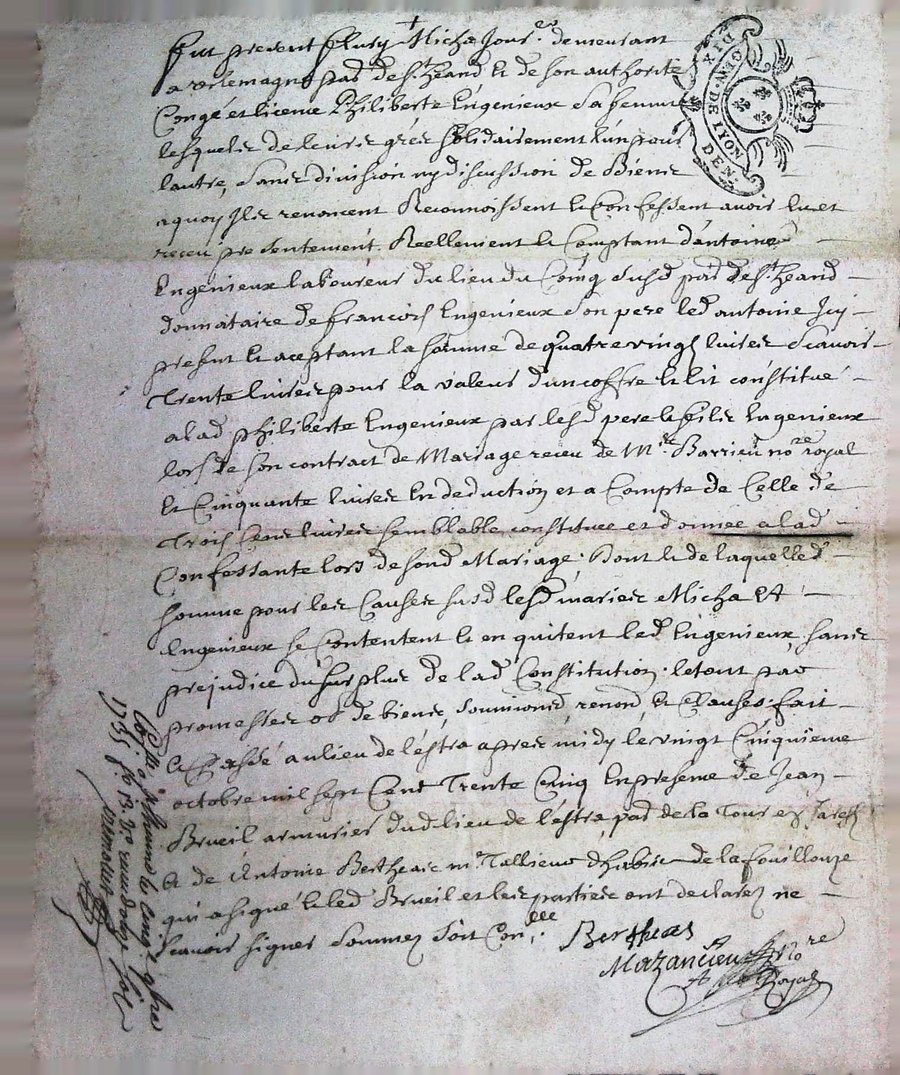 fut present fleury Micha Jour.er demeurant
a vilemagne par de st heand et de son authorité
Congé et licence Philiberte Engenieux sa femme
lesquels de leurs grés solidairement l'un pour
lautre, sans division ny discussion de Biens
a quoy Ils renoncent Reconnoissent et Confessent avoir eu et
receu presentement Reellement et Comptant d'antoine
Engenieux laboureur du lieu du Coing susd par. de st heand
donnataire de francois Engenieux son pere led antoine Icy
present et aceptant la somme de quatre vingt livres scavoir
Trente livres pour la valeur dun coffre et lit constitué
a lad philiberte Engenieux par lesd pere et fils Engenieux
lors de son contract de Mariage receu de Mre Barrieu nore royal
et Cinquante livres En deduction et a Compte de Celle de
Trois Cens livres semblable constituee et donnee a lad
Confessante lors de sond Mariage. Dont et de laquelle
somme pour les Causes susd lesd mariés Micha Et
Engenieux se Contentent et en quitent led Engenieux sans
prejudice du surplus de lad Constitution. le tout par
promesses ob de biens, soumions renons et Clauses. fait
et passé au lieu de l'estra apres midy le vingt Cinquieme
octobre mil sept Cent Trente Cinq En presence de Jean
Brueil armurier dud lieu de l'estra, par de la Tour en Jarest
et de Antoine Berthear me Tallieur d'habis de la fouillouze
qui a signé et led Brueil et les parties ont declarez ne
scavoir signer Sommez soit Con.lle
Berthear
Mazancieu nore
Royal
GEN. DE LYON
DIX DEN.
1735